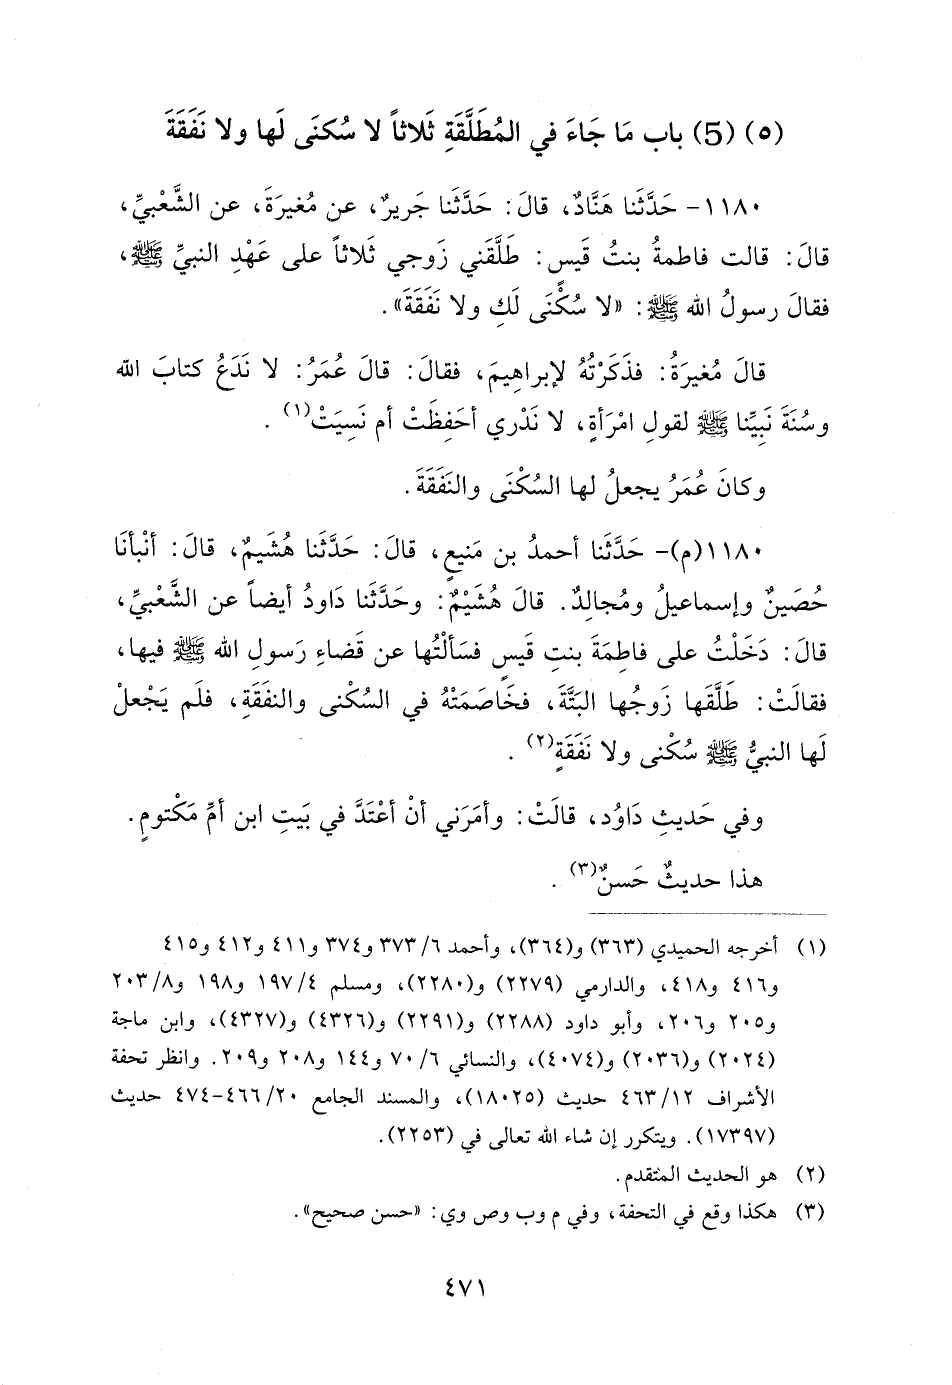 (٥) (5) باب مَا جَاءَ في المُطَلَّقَةِ ثَلاثاً لا سُكنَى لَها ولا نَفَقَةَ
١١٨٠- حَدَّثَنا هَنَّادٌ، قالَ: حَدَّثَنا جَريرٌ، عن مُغيرَةَ، عن الشَّعْبيِّ،
قالَ: قالت فاطمةُ بنتُ قَيسٍ: طَلَّقَني زَوجي ثَلاثاً على عَهْدِ النبيِّ ﷺ،
فقالَ رسولُ الله ﷺ: «لا سُكْنَى لَكِ ولا نَفَقَةَ».
قالَ مُغيرَةُ: فذَكَرْتُهُ لإبراهِيمَ، فقالَ: قالَ عُمَرُ: لا نَدَعُ كتابَ الله
وسُنَةَ نَبِيِّنا ﷺ لقولِ امْرَأةٍ، لا نَدْري أحَفِظَتْ أم نَسِيَتْ(١).
وكانَ عُمَرُ يجعلُ لها السُكْنَى والنَفَقَةَ.
١١٨٠(م)- حَدَّثَنا أحمدُ بن مَنيعٍ، قالَ: حَدَّثَنا هُشَيمٌ، قالَ: أنْبأنَا
حُصَينٌ وإسماعيلُ ومُجالِدٌ. قالَ هُشَيْمٌ: وحَدَّثَنا دَاودُ أيضاً عن الشَّعْبيِّ،
قالَ: دَخَلْتُ على فاطِمَةَ بنتِ قَيسٍ فسَألْتُها عن قَضاءِ رَسولِ الله ﷺ فيها،
فقالَتْ: طَلَّقَها زَوجُها البَتَّةَ، فخَاصَمَتْهُ في السُكْنى والنفَقَةِ، فلَم يَجْعلْ
لَها النبيُّ ﷺ سُكْنى ولا نَفَقَةٍ(٢).
وفي حَديثِ دَاوُد، قالَتْ: وأمَرَني أنْ أعْتَدَّ في بَيتِ ابن أمِّ مَكْتومٍ.
هذا حديثٌ حَسنٌ(٣).
(١) أخرجه الحميدي (٣٦٣) و(٣٦٤)، وأحمد ٦/ ٣٧٣ و٣٧٤ و٤١١ و٤١٢ و٤١٥
و٤١٦ و٤١٨، والدارمي (٢٢٧٩) و(٢٢٨٠)، ومسلم ٤/ ١٩٧ و١٩٨ و٨/ ٢٠٣
و٢٠٥ و٢٠٦، وأبو داود (٢٢٨٨) و(٢٢٩١) و(٤٣٢٦) و(٤٣٢٧)، وابن ماجة
(٢٠٢٤) و(٢٠٣٦) و(٤٠٧٤)، والنسائي ٦/ ٧٠ و١٤٤ و٢٠٨ و٢٠٩. وانظر تحفة
الأشراف ١٢/ ٤٦٣ حديث (١٨٠٢٥)، والمسند الجامع ٢٠/ ٤٦٦-٤٧٤ حديث
(١٧٣٩٧). ويتكرر إن شاء الله تعالى في (٢٢٥٣).
(٢) هو الحديث المتقدم.
(٣) هكذا وقع في التحفة، وفي م وب وص وي: «حسن صحيح».
٤٧١